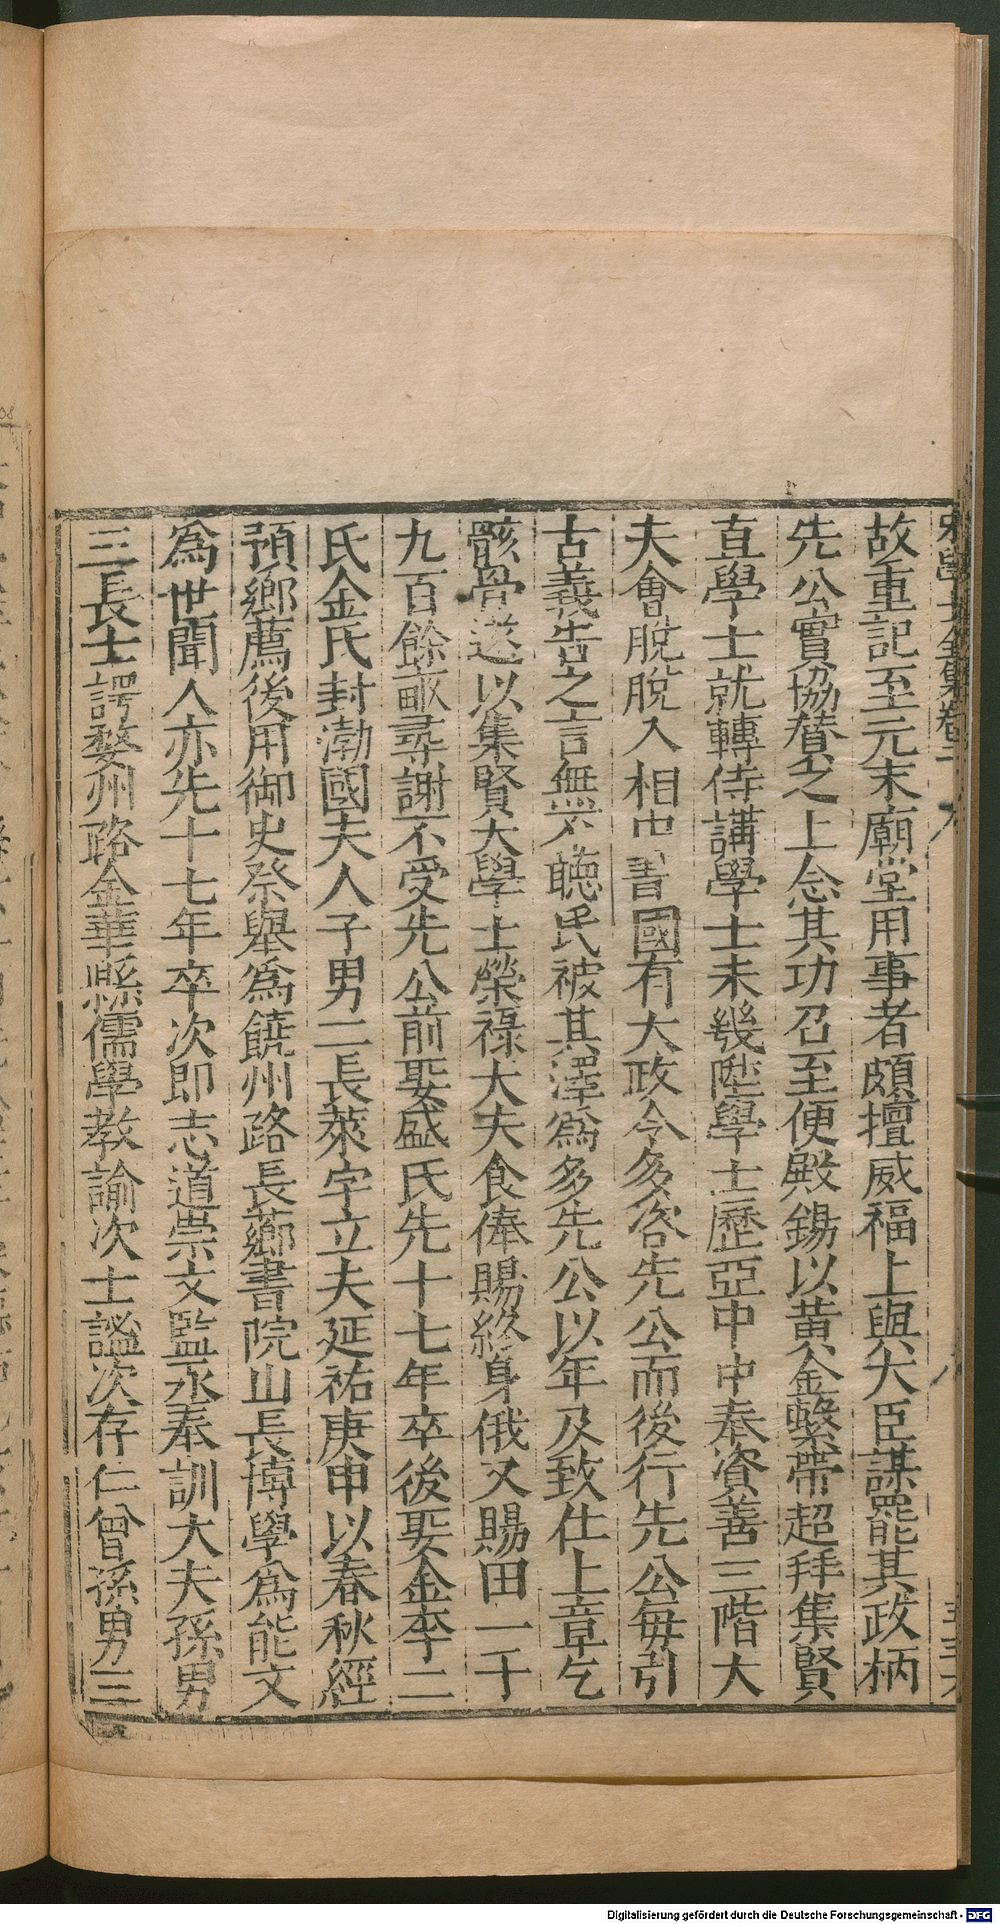 宋學士全集卷二
故重記至元末廟堂用事者頗擅威福上與大臣謀罷其政柄
先公實協賛之上念其功召至便殿錫以黄金繫帶超拜集賢
直學士就轉侍講學士未幾陞學士歷亞中中奉資善三階大
夫會脫脫入相中書國有大政令多咨先公而後行先公每引
古義告之言無不聽民被其澤爲多先公以年及致仕上章乞
骸骨遂以集賢大學士榮祿大夫食俸賜終身俄又賜田一千
九百餘畝尋謝不受先公前娶盛氏先十七年卒後娶金李二
氏金氏封渤國夫人子男二長萊字立夫延祐庚申以春秋經
預鄉薦後用御史察舉爲饒州路長薌書院山長博學爲能文
爲世聞人亦先十七年卒次即志道崇文監丞奉訓大夫孫男
三長士諤婺州路金華縣儒學教諭次士謐次存仁曾孫男三
Digitalisierung gefördert durch die Deutsche Forschungsgemeinschaft - DFG